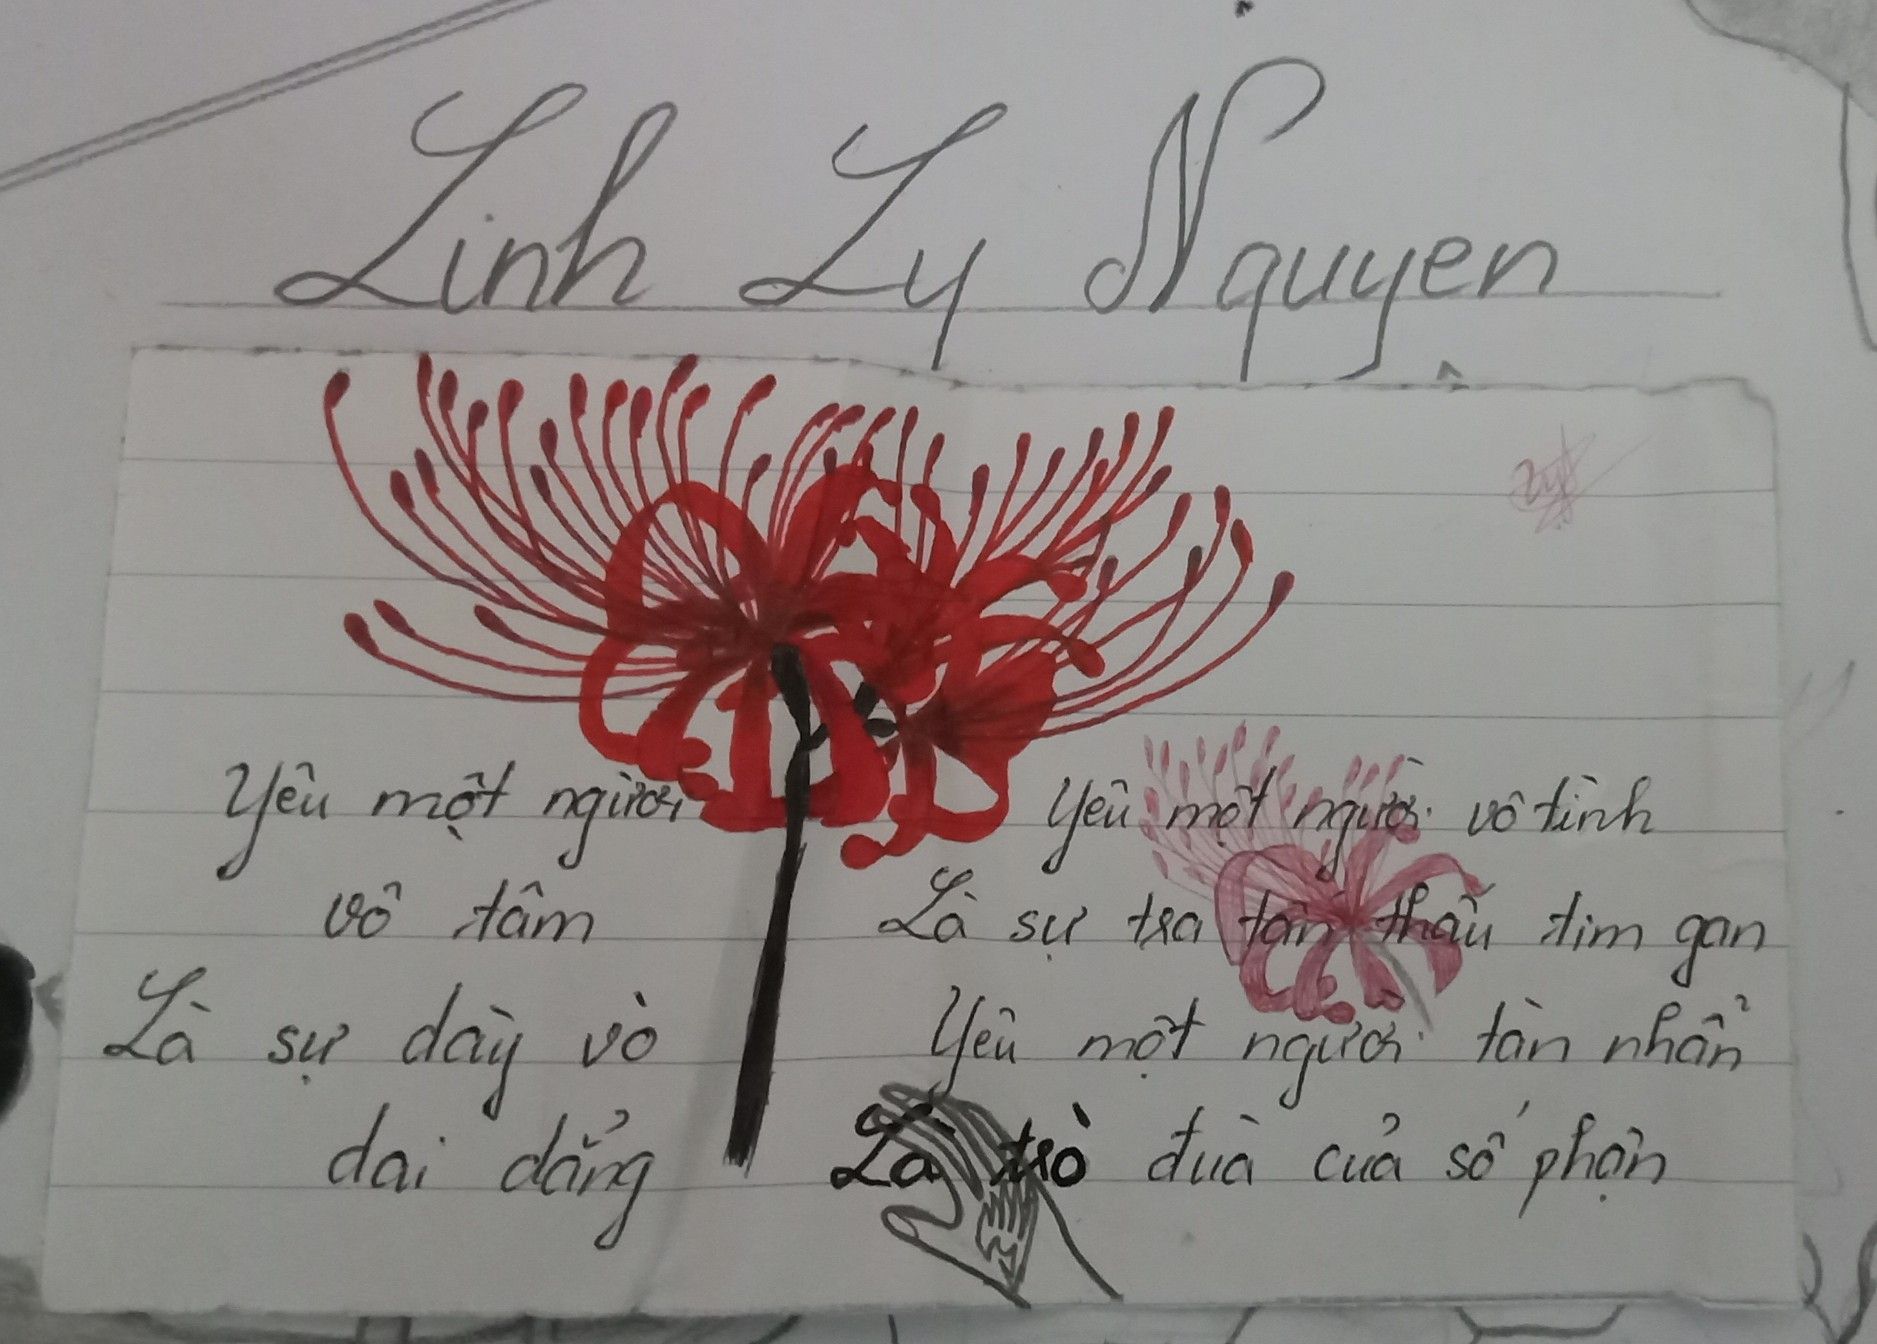 Linh Ly Nguyen
Yêu một người
vô tâm
Là sự dày vò
dai dẳng
Yêu một người vô tình
Là sự tra tấn thấu tim gan
Yêu một người tàn nhẩn
Là trò đùa của số phận